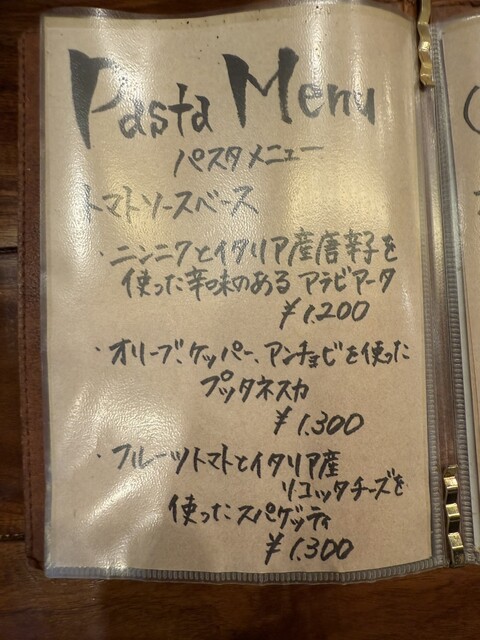 Pasta Menu
パスタメニュー
トマトソースベース
・ニンニクとイタリア産唐辛子を
使った辛味のある アラビアータ
¥1.200
・オリーブ、ケッパー、アンチョビを使った
プッタネスカ
¥1.300
・フルーツトマトとイタリア産
リコッタチーズを
使ったスパゲッティ
¥1.300